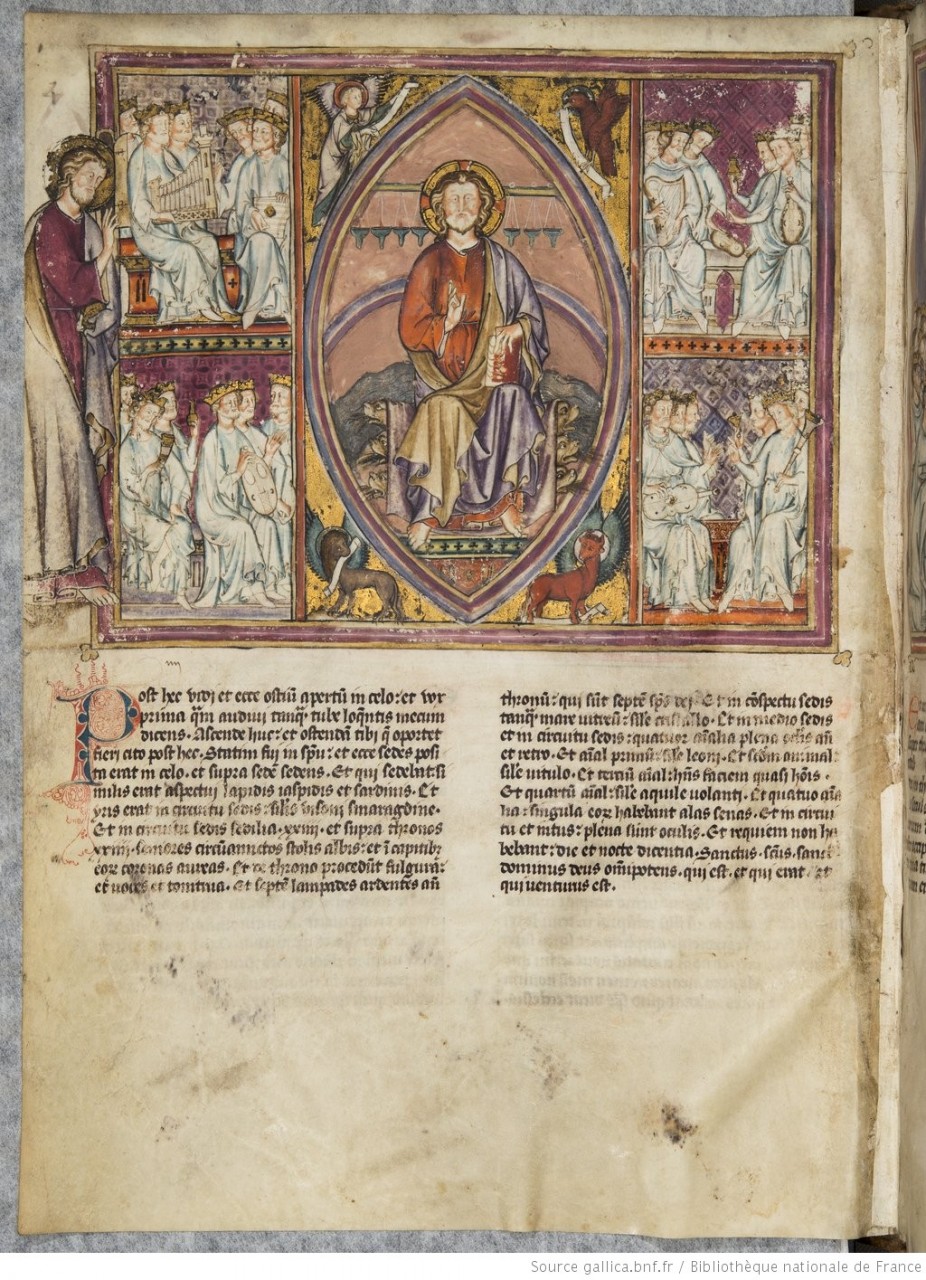 Post hec vidi et ecce ostiū apertū in celo: et vox
prima q̄m audiui tanq̄ tube loq̄ntis mecum
dicens. Ascende huc: et ostendā tibi q̄ oportet
fieri cito post hec. Statim fui in sp̄u: et ecce sedes posi
ta erat in celo. et supra sedē sedens. Et qui sedebat si
milis erat aspectui lapidis iaspidis et sardinis. Et
yris erat in circuitu sedis similis visioni smaragdine.
Et in circuitu sedis sedilia .xxiiii. et supra thronos
xxiiii. seniores circūamictos stolis albis: et ī capitibꝫ
eoꝝ coronas aureas. Et de throno procedūt fulgura:
et uoces et tonitrua. Et septē lampades ardentes añ
thronū: qui sūt septē sp̄s dei. Et in cōspectu sedis
tanq̄ mare uitreū: sile cristallo. Et in medio sedis
et in circuitu sedis: quatuor aīalia plena oclis añ
et retro. Et aīal primū: sile leoni. Et scd̄m animal:
sile uitulo. Et terciū aīal: hn̄s faciem quasi hōīs.
Et quartū aīal: sile aquile volanti. Et quatuor aīa
lia: singula eoꝝ habebant alas senas. Et in circui
tu et intus: plena sunt oculis. Et requiem non ha
bebant: die et nocte dicentia. Sanctus. scūs. sanctus
dominus deus om̄ipotens. qui est. et qui erat. et
qui uenturus est.
Source gallica.bnf.fr / Bibliothèque nationale de France